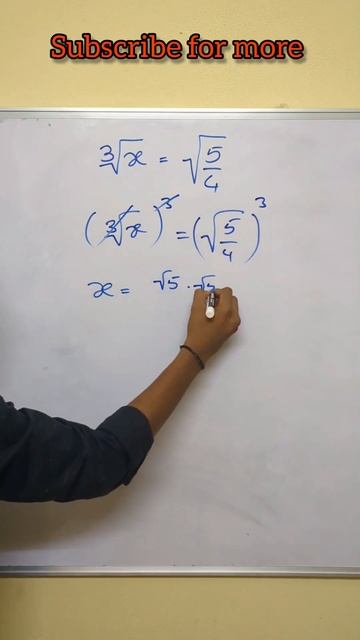 Subscribe for more
∛x = √(5/4)
(∛x)³ = (√(5/4))³
x = √5 · √5